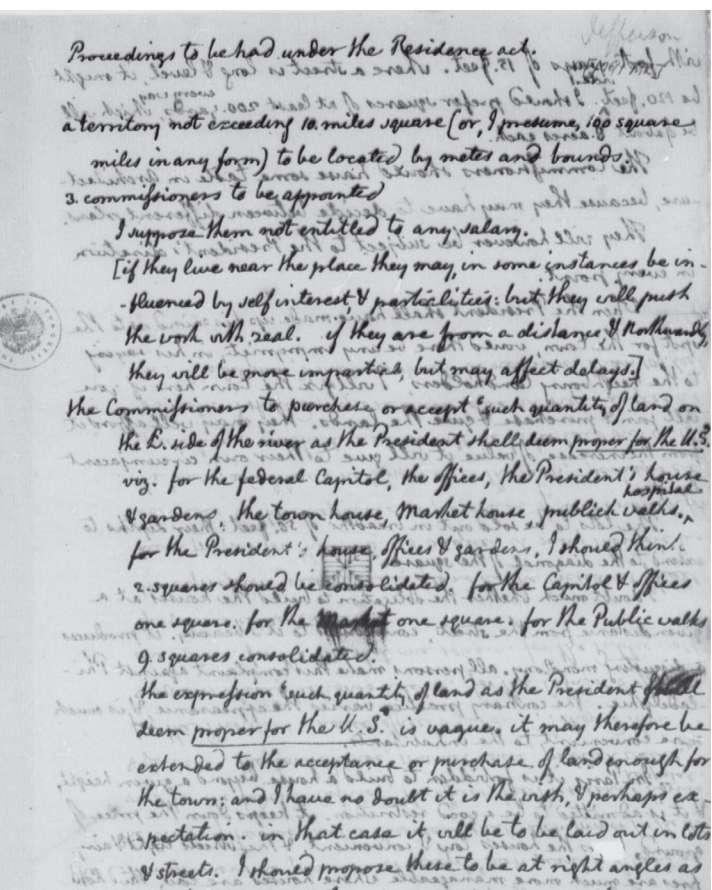 Jefferson
Proceedings to be had under the Residence act.
a territory not exceeding 10. miles square (or, I presume, 100 square
miles in any form) to be located by metes and bounds.
3. commissioners to be appointed
I suppose them not entitled to any salary.
[if they live near the place they may, in some instances be in-
-fluenced by self interest & partialities: but they will push
the work with zeal. if they are from a distance & Northwardly,
they will be more impartial, but may affect delays.]
the Commissioners to purchase or accept "such quantity of land on
the E. side of the river as the President shall deem proper for the U.S."
viz. for the federal Capitol, the offices, the President's house
hospital
& gardens, the town house, Market house publick walks.
for the President's house, offices & gardens, I should think
2. squares should be consolidated. for the Capitol & offices
one square. for the Market one square. for the Public walks
9. squares consolidated.
the expression "such quantity of land as the President shall
deem proper for the U.S." is vague. it may therefore be
extended to the acceptance or purchase of land enough for
the town: and I have no doubt it is the wish, & perhaps ex-
-pectation. in that case it will be to be laid out in lots
& streets. I should propose these to be at right angles as